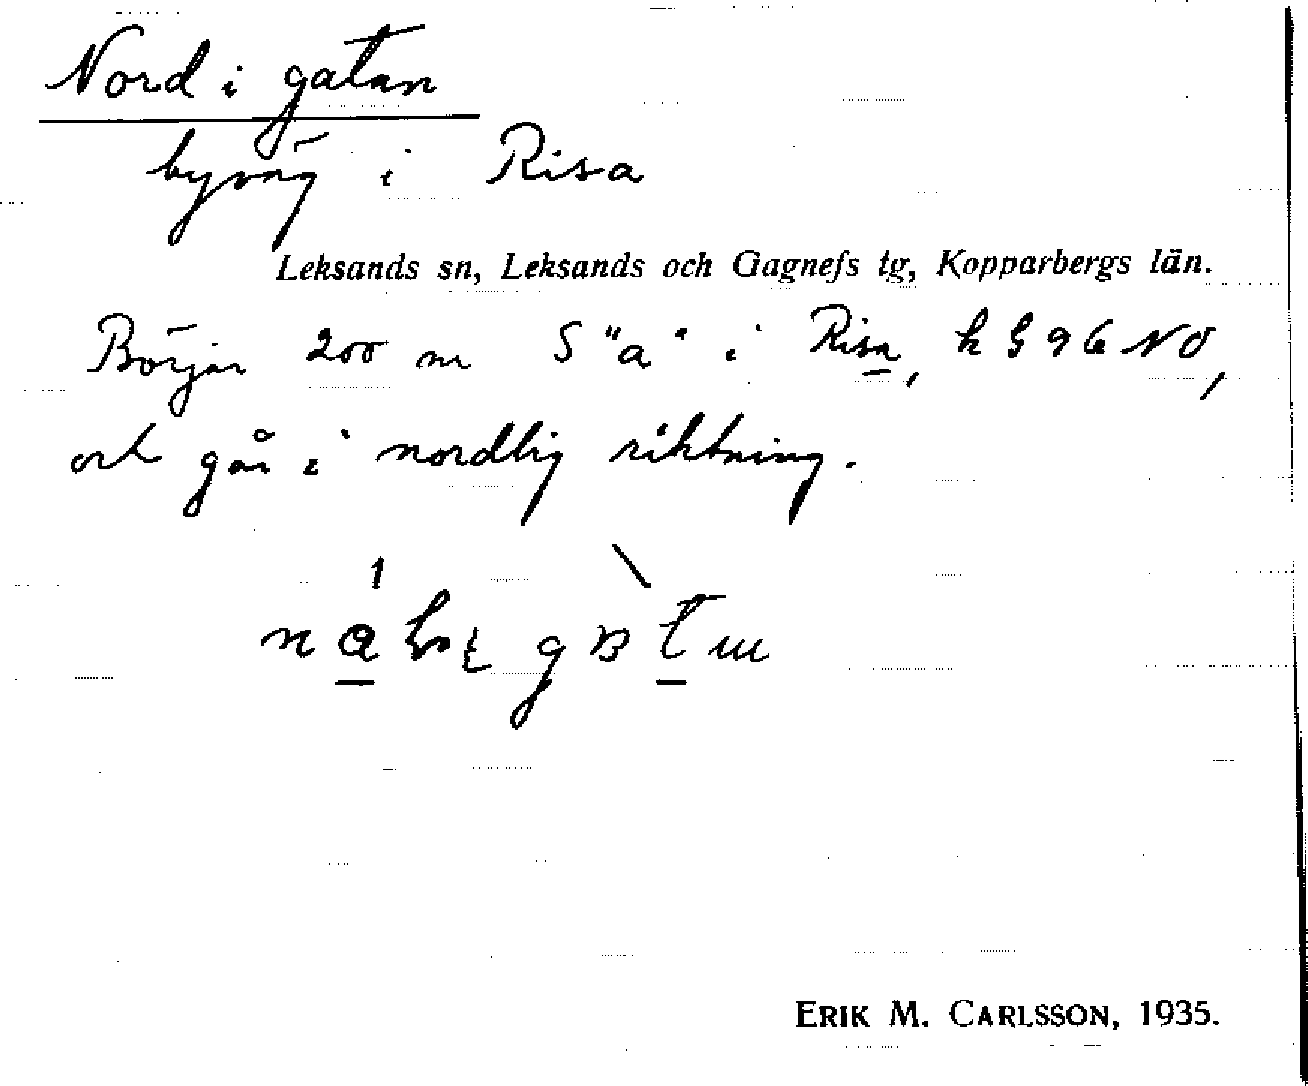 Nord i gatan
byväg i Risa
Leksands sn, Leksands och Gagnefs tg, Kopparbergs län.
Börjar 200 m S "a" i Risa, k G 96 NO,
och går i nordlig riktning.
ERIK M. CARLSSON, 1935.